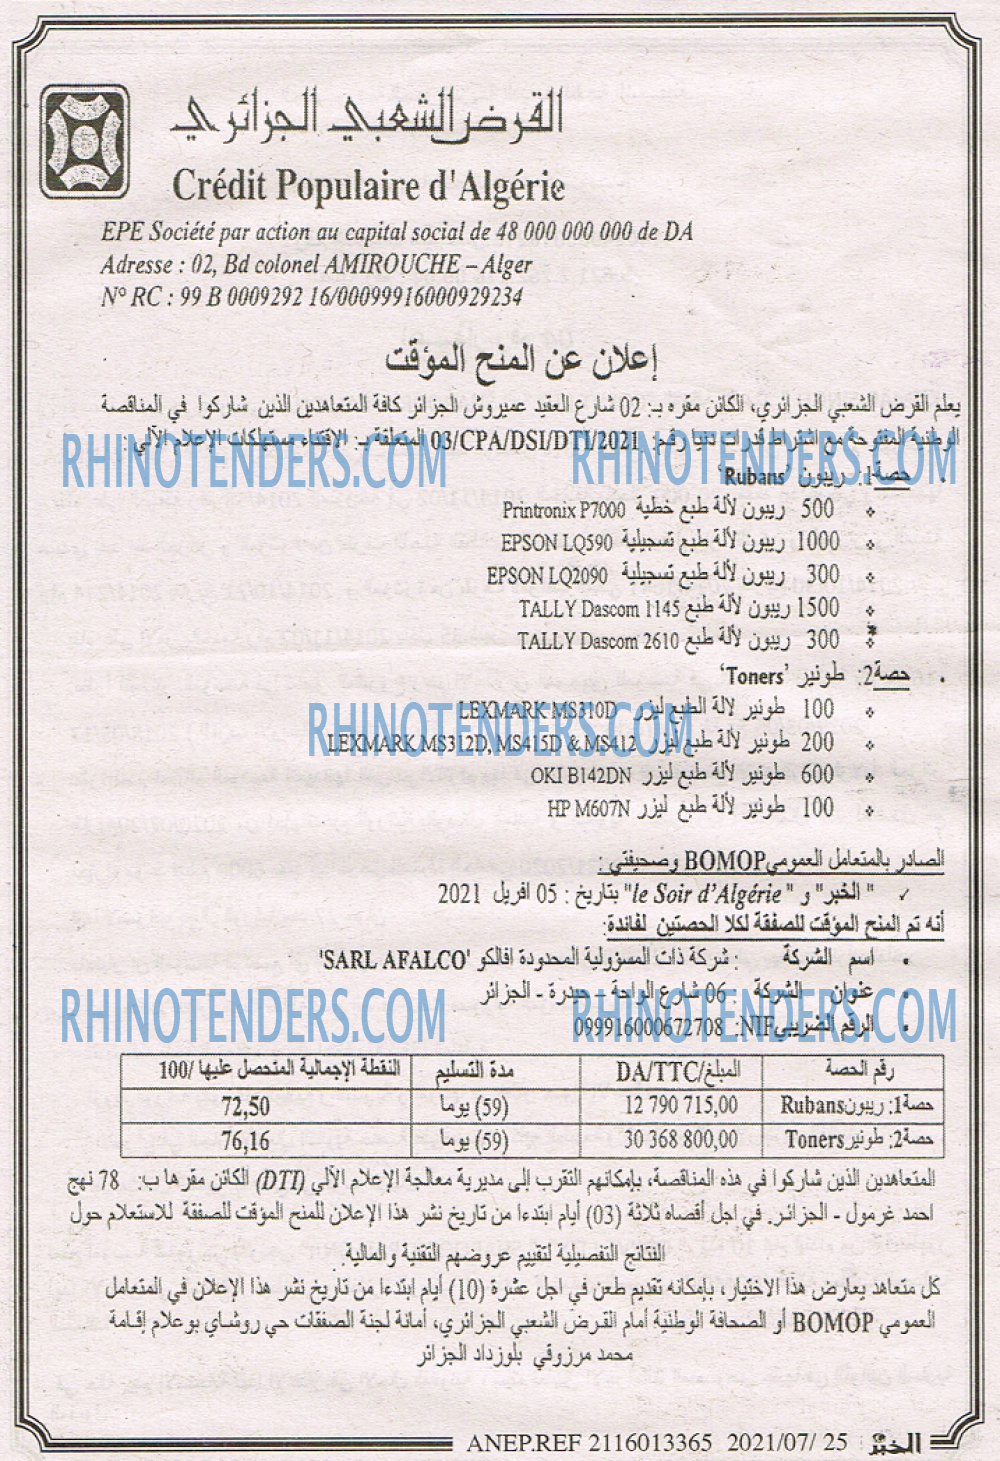 القرض الشعبي الجزائري
Crédit Populaire d'Algérie
EPE Société par action au capital social de 48 000 000 000 de DA
Adresse : 02, Bd colonel AMIROUCHE – Alger
N° RC : 99 B 0009292 16/00099916000929234
إعلان عن المنح المؤقت
يعلم القرض الشعبي الجزائري، الكائن مقره بـ: 02 شارع العقيد عميروش الجزائر كافة المتعاهدين الذين شاركوا في المناقصة
الوطنية المفتوحة مع اشتراط قدرات دنيا رقم: 03/CPA/DSI/DTI/2021 المتعلقة بـ: الإقتناء مستهلكات الإعلام الآلي :
RHINOTENDERS.COM RHINOTENDERS.COM
• حصة1: ريبون 'Rubans'
500 ريبون لألة طبع خطية Printronix P7000
1000 ريبون لألة طبع تسجيلية EPSON LQ590
300 ريبون لألة طبع تسجيلية EPSON LQ2090
1500 ريبون لألة طبع TALLY Dascom 1145
300 ريبون لألة طبع TALLY Dascom 2610
• حصة2: طونير 'Toners'
100 طونير لألة الطبع ليزر LEXMARK MS310D
RHINOTENDERS.COM
200 طونير لألة طبع ليزر LEXMARK MS312D, MS415D & MS412
600 طونير لألة طبع ليزر OKI B142DN
100 طونير لألة طبع ليزر HP M607N
الصادر بالمتعامل العمومي BOMOP وصحيفتي :
✓ "الخبر" و "le Soir d'Algérie" بتاريخ : 05 افريل 2021
أنه تم المنح المؤقت للصفقة لكلا الحصتين لفائدة:
• اسم الشركة : شركة ذات المسؤولية المحدودة افالكو 'SARL AFALCO'
• عنوان الشركة : 06 شارع الراحة – حيدرة - الجزائر
RHINOTENDERS.COM RHINOTENDERS.COM
• الرقم الضريبي NIF: 099916000672708
رقم الحصة المبلغ/DA/TTC مدة التسليم النقطة الإجمالية المتحصل عليها /100
حصة1: ريبون Rubans 12 790 715,00 (59) يوما 72,50
حصة2: طونير Toners 30 368 800,00 (59) يوما 76,16
المتعاهدين الذين شاركوا في هذه المناقصة، بإمكانهم التقرب إلى مديرية معالجة الإعلام الألي (DTI) الكائن مقرها ب: 78 نهج
احمد غرمول - الجزائر. في اجل أقصاه ثلاثة (03) أيام ابتدءا من تاريخ نشر هذا الإعلان للمنح المؤقت للصفقة للاستعلام حول
النتائج التفصيلية لتقييم عروضهم التقنية والمالية.
كل متعاهد يعارض هذا الاختيار، بإمكانه تقديم طعن في اجل عشرة (10) أيام ابتدءا من تاريخ نشر هذا الإعلان في المتعامل
العمومي BOMOP أو الصحافة الوطنية أمام القرض الشعبي الجزائري، أمانة لجنة الصفقات حي روشاي بوعلام إقامة
محمد مرزوقي بلوزداد الجزائر
ANEP.REF 2116013365 2021/07/ 25 الخبر